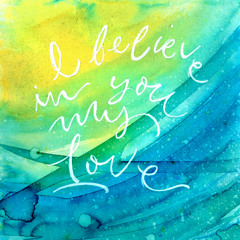 I believe
in you
my
love